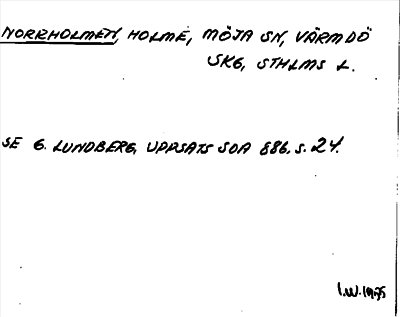 NORRHOLMEN, HOLME, MÖJA SN, VÄRMDÖ
SKG, STHLMS L.
SE G. LUNDBERG, UPPSATS SOA 886, S. 24.
I.W. 1975